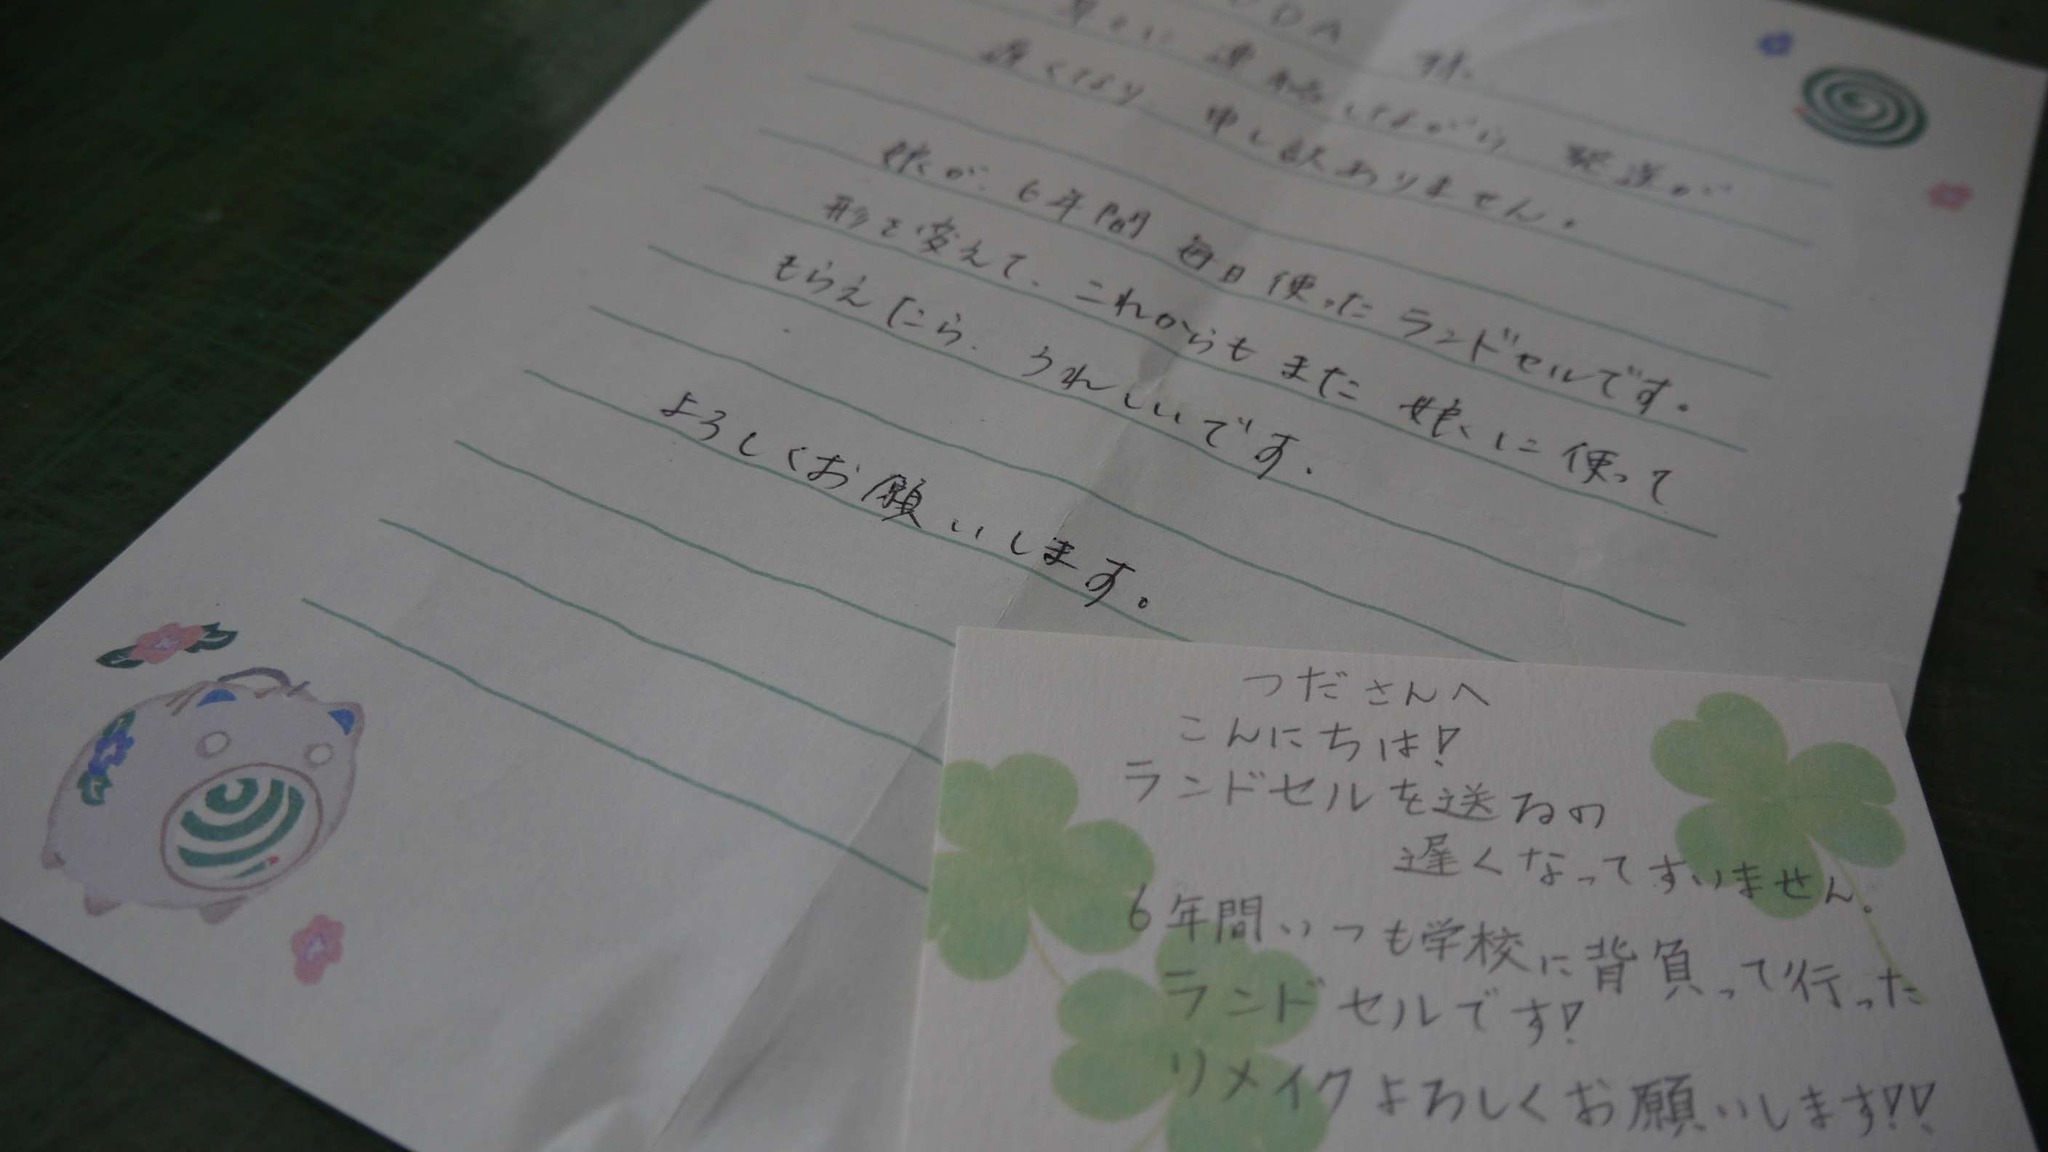 様
早々に連絡しながら 発送が
遅くなり 申し訳ありません。
娘が、6年間 毎日使ったランドセルです。
形を変えて、これからもまた 娘に使って
もらえたら、うれしいです。
よろしくお願いします。
つださんへ
こんにちは!
ランドセルを送るの
遅くなってすいません。
6年間いつも学校に背負って行った
ランドセルです!
リメイクよろしくお願いします!!